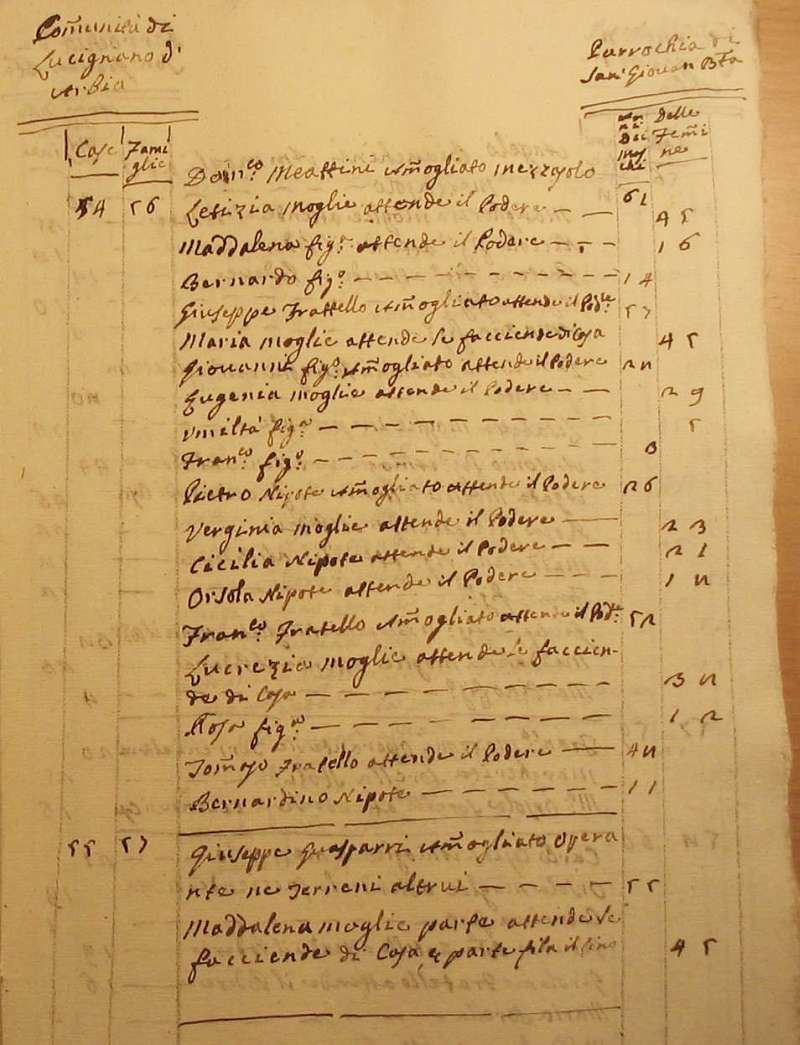 Com̃unità di
Lucignano d'
Arbia
Parrochia di
San Giovan Bta
Case
Fami
glie
An
ni
Dei
Mas
chi
Delle
Fem̃i
ne
Domco Meattini Am̃ogliato Mezzajolo 61
54 56 Letizia Moglie attende il Podere — — 45
Maddalena figa attende il Podere — — — 16
Bernardo figo — — — — — — — — 14
Giuseppe Frattello Am̃ogliato attende il Pode 57
Maria Moglie attende le facciende di Casa 45
Giovanni figo Am̃ogliato attende il Podere
Eugenia Moglie attende il Podere — — 29
Umiltà figa — — — — — — — — 5
Franco figo — — — — — — — —
Pietro Nipote Am̃ogliato attende il Podere 26
Verginia Moglie attende il Podere — 23
Cicilia Nipote attende il Podere — — 21
Orsola Nipote attende il Podere — — —
Franco Fratello Am̃ogliato attende il Pode 52
Lucrezia Moglie attende le faccien-
de di Casa — — — — — — — —
Rosa figa — — — — — — — — 12
Tom̃aso Fratello attende il Podere —
Bernardino Nipote — — — — — — 11
55 57 Giuseppe Guasparri Am̃ogliato Opera
nte ne Terreni altrui — — — — 55
Maddalena Moglie parte attende le
facciende di Casa, e parte fila il lino 45